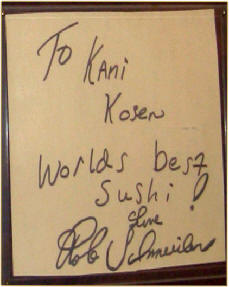 To Kani
Kosen
Worlds best
Sushi!
Love
Rob Schneider